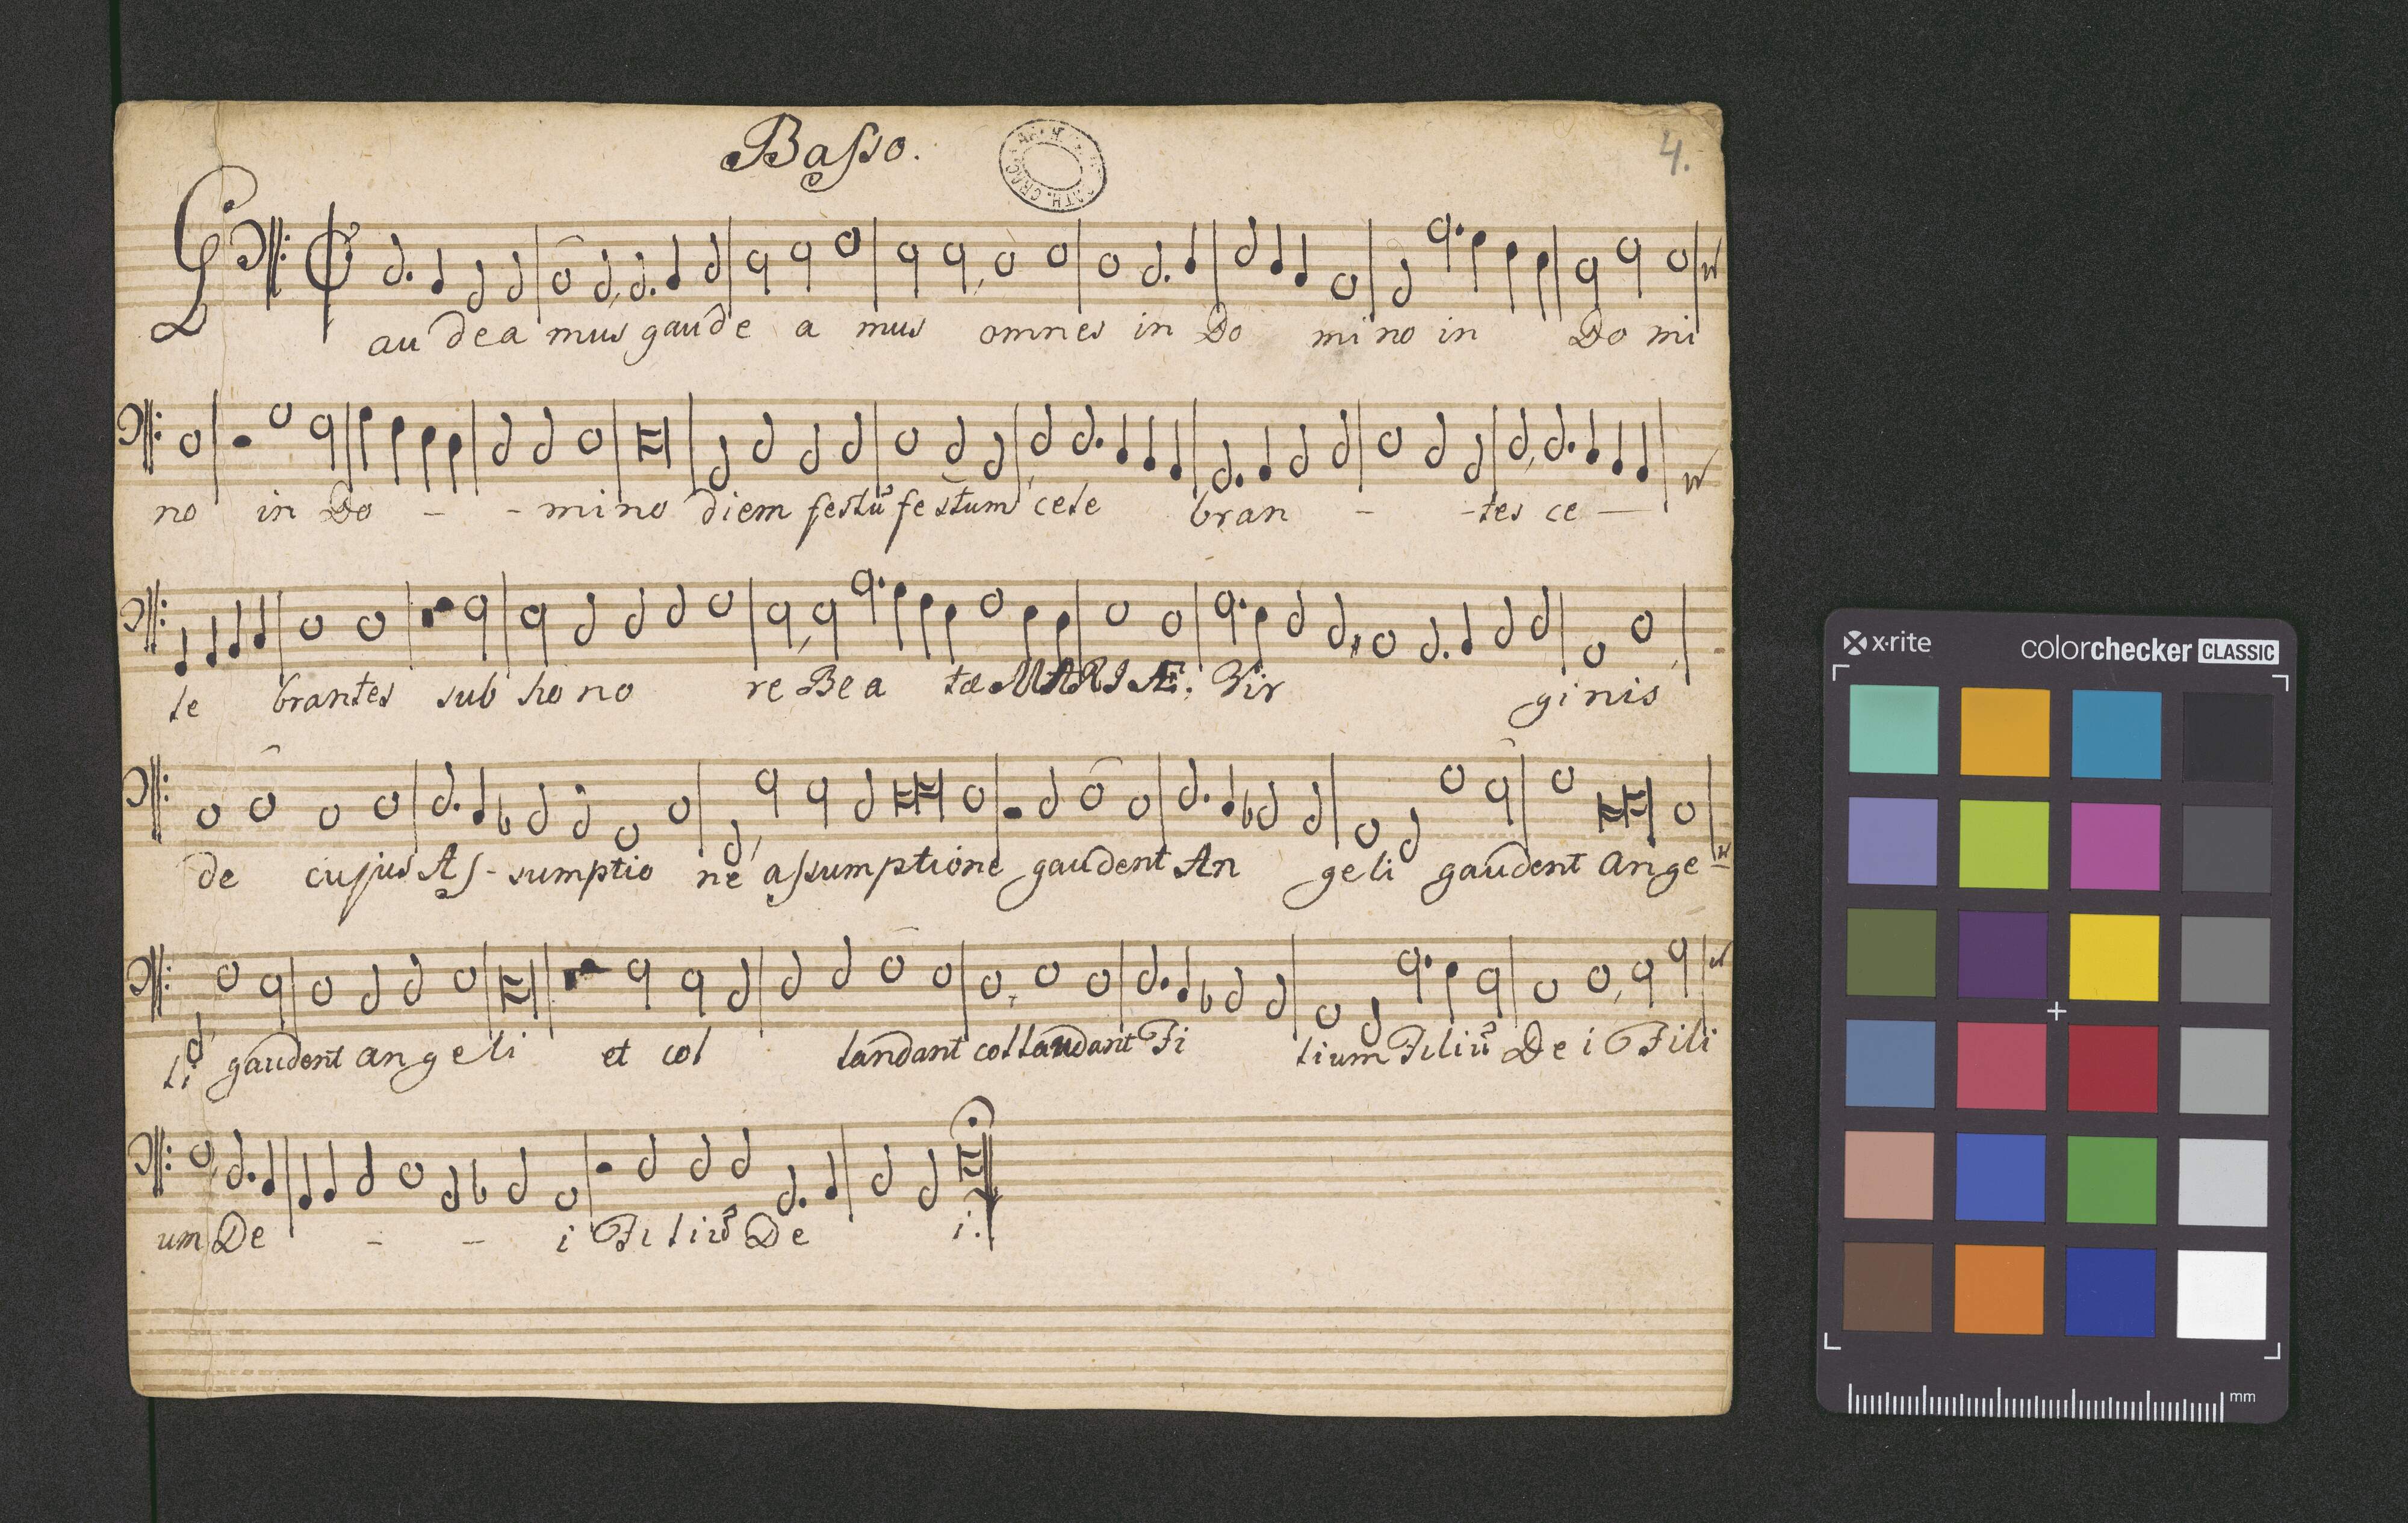 Basso.
4.
Gaudeamus gaude a mus omnes in Do mino in Do mi
no in Do - - mino diem festũ festum cele bran - - tes ce -
le brantes sub hono re Bea tæ MARIÆ. Vir ginis
de cujus As - sumptio ne assumptione gaudent An geli gaudent Ange -
li gaudent angeli et col landant collaudant Fi lium Filiũ Dei Fili
um De - - i Filiũ De i.
x·rite
colorchecker CLASSIC
mm